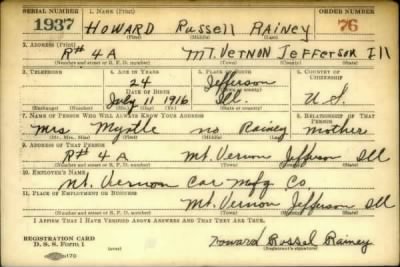 SERIAL NUMBER 1. NAME (Print) ORDER NUMBER
1937 HOWARD Russell RAINEY 76
(First) (Middle) (Last)
2. ADDRESS (Print)
R# 4A MT. VERNON Jefferson Ill
(Number and street or R. F. D. number) (Town) (County) (State)
3. TELEPHONE 4. AGE IN YEARS 5. PLACE OF BIRTH 6. COUNTRY OF CITIZENSHIP
24 Jefferson
DATE OF BIRTH (Town or county)
July 11 1916 Ill. U S.
(Exchange) (Number) (Mo.) (Day) (Yr.) (State or country)
7. NAME OF PERSON WHO WILL ALWAYS KNOW YOUR ADDRESS 8. RELATIONSHIP OF THAT PERSON
Mrs Myrtle no Rainey Mother
(Mr., Mrs., Miss) (First) (Middle) (Last)
9. ADDRESS OF THAT PERSON
R# 4A Mt. Vernon Jefferson Ill
(Number and street or R. F. D. number) (Town) (County) (State)
10. EMPLOYER'S NAME
Mt. Vernon Car Mfg Co
11. PLACE OF EMPLOYMENT OR BUSINESS
Mt. Vernon Jefferson Ill
(Number and street or R. F. D. number) (Town) (County) (State)
I AFFIRM THAT I HAVE VERIFIED ABOVE ANSWERS AND THAT THEY ARE TRUE.
REGISTRATION CARD
D. S. S. Form 1 Howard Russel Rainey
(Registrant's signature)